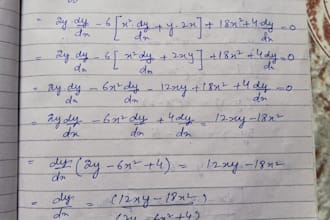 2y dy/dx - 6[x² dy/dx + y·2x] + 18x² + 4 dy/dx = 0
= 2y dy/dx - 6[x² dy/dx + 2xy] + 18x² + 4 dy/dx = 0
= 2y dy/dx - 6x² dy/dx - 12xy + 18x² + 4 dy/dx = 0
= 2y dy/dx - 6x² dy/dx + 4 dy/dx = 12xy - 18x²
= dy/dx (2y - 6x² + 4) = 12xy - 18x²
= dy/dx = (12xy - 18x²) / (2y - 6x² + 4)